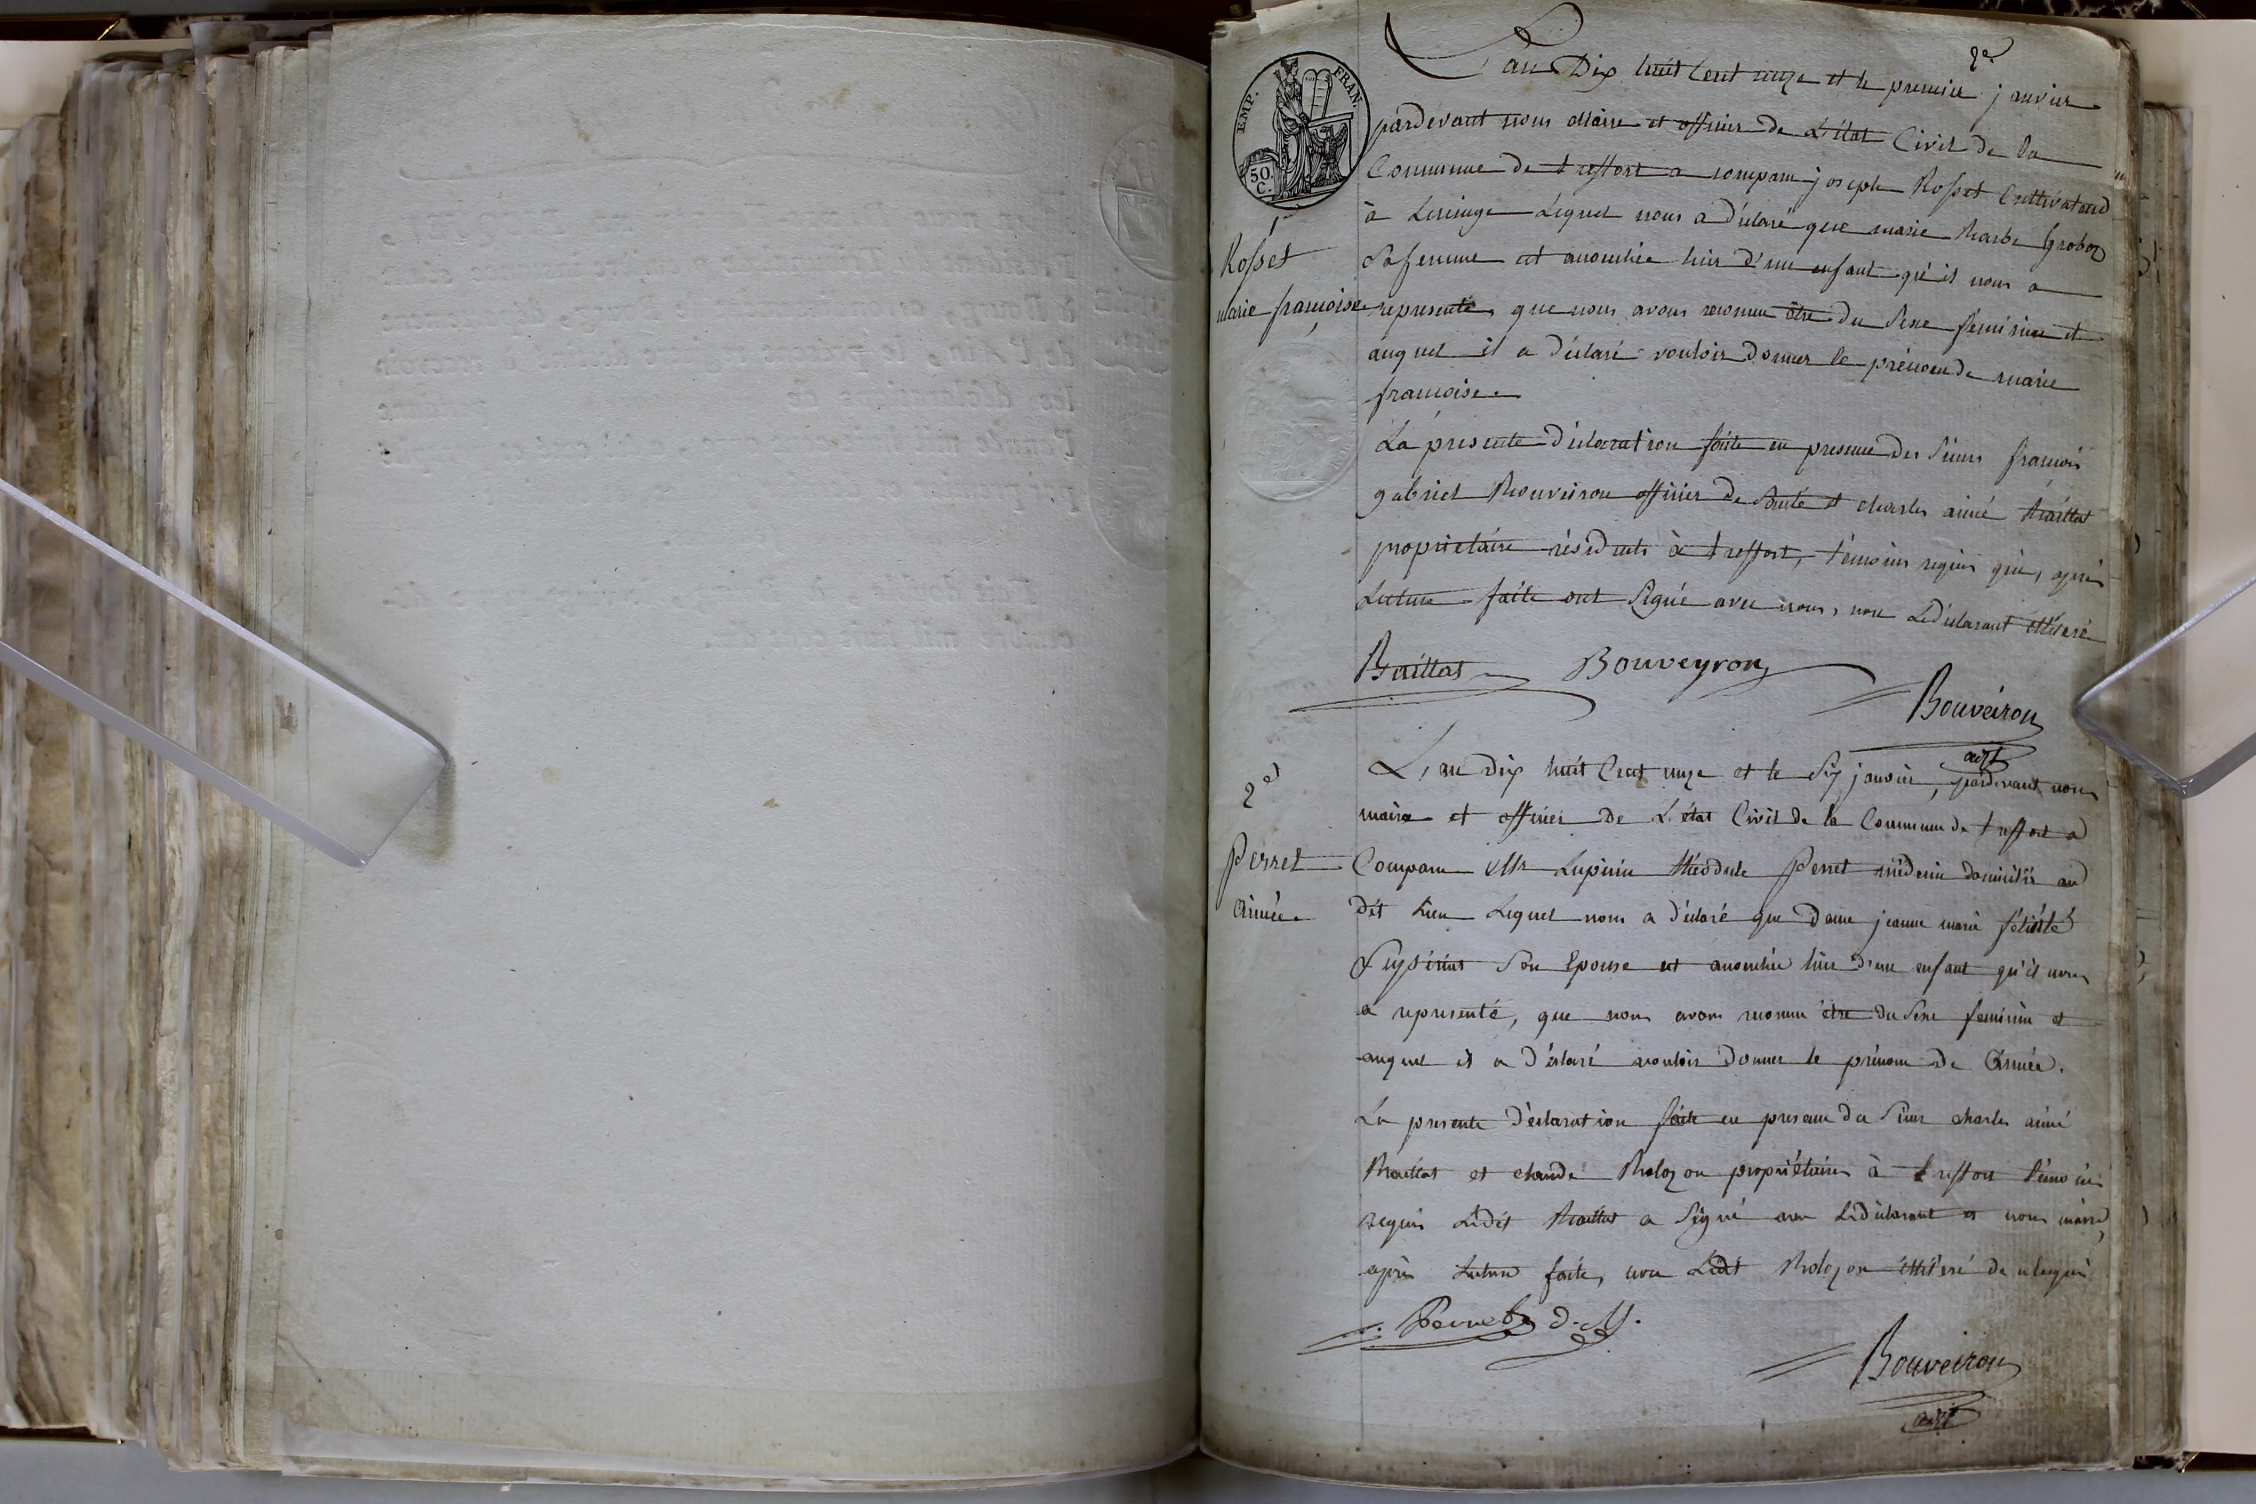 2e
EMP. FRAN.
50. C.
L'an Dix huit Cent onze et le premier janvier
pardevant nous Maire et officier de L'état Civil de la
Commune de treffort a comparu joseph Rosset Cultivateur
à Lequel nous a déclaré que marie Groboz
Sa femme est accouchée hier d'un enfant qu'il nous a
representé, que nous avons reconnu être du Sexe féminin et
auquel il a déclaré vouloir donner le prénom de marie
francoise.
1er
Rosset
marie francoise
La presente déclaration faite en presence des Sieurs francois
gabriel Bouveiron officier de Santé et charles aimé Baillat
proprietaire résidents à treffort, témoins requis qui, après
Lecture faite ont Signé avec nous, non Ledéclarant illiteré
Baillat Bouveyron
Bouveiron
adjt
2e
Perret
Aimée.
L'an dix huit Cent onze et le Six janvier, pardevant nous
maire et officier de L'état Civil de la Commune de treffort a
Comparu Mr Lupicin théodule Perret médecin domicilié au
dit Lieu Lequel nous a déclaré que dame jeanne marie félicité
Son Epouse est accouchée hier d'un enfant qu'il nous
a representé, que nous avons reconnu être du Sexe feminin et
auquel il a déclaré vouloir donner le prénom de Aimée.
La presente déclaration faite en presence des Sieurs charles aimé
Baillat et claude Bolozon propriétaires à treffort témoins
requis Ledit Baillat a Signé avec Ledéclarant et nous maire,
après Lecture faite, non Ledit Bolozon illiteré de ce requis
Perret d. M.
Bouveiron
adjt